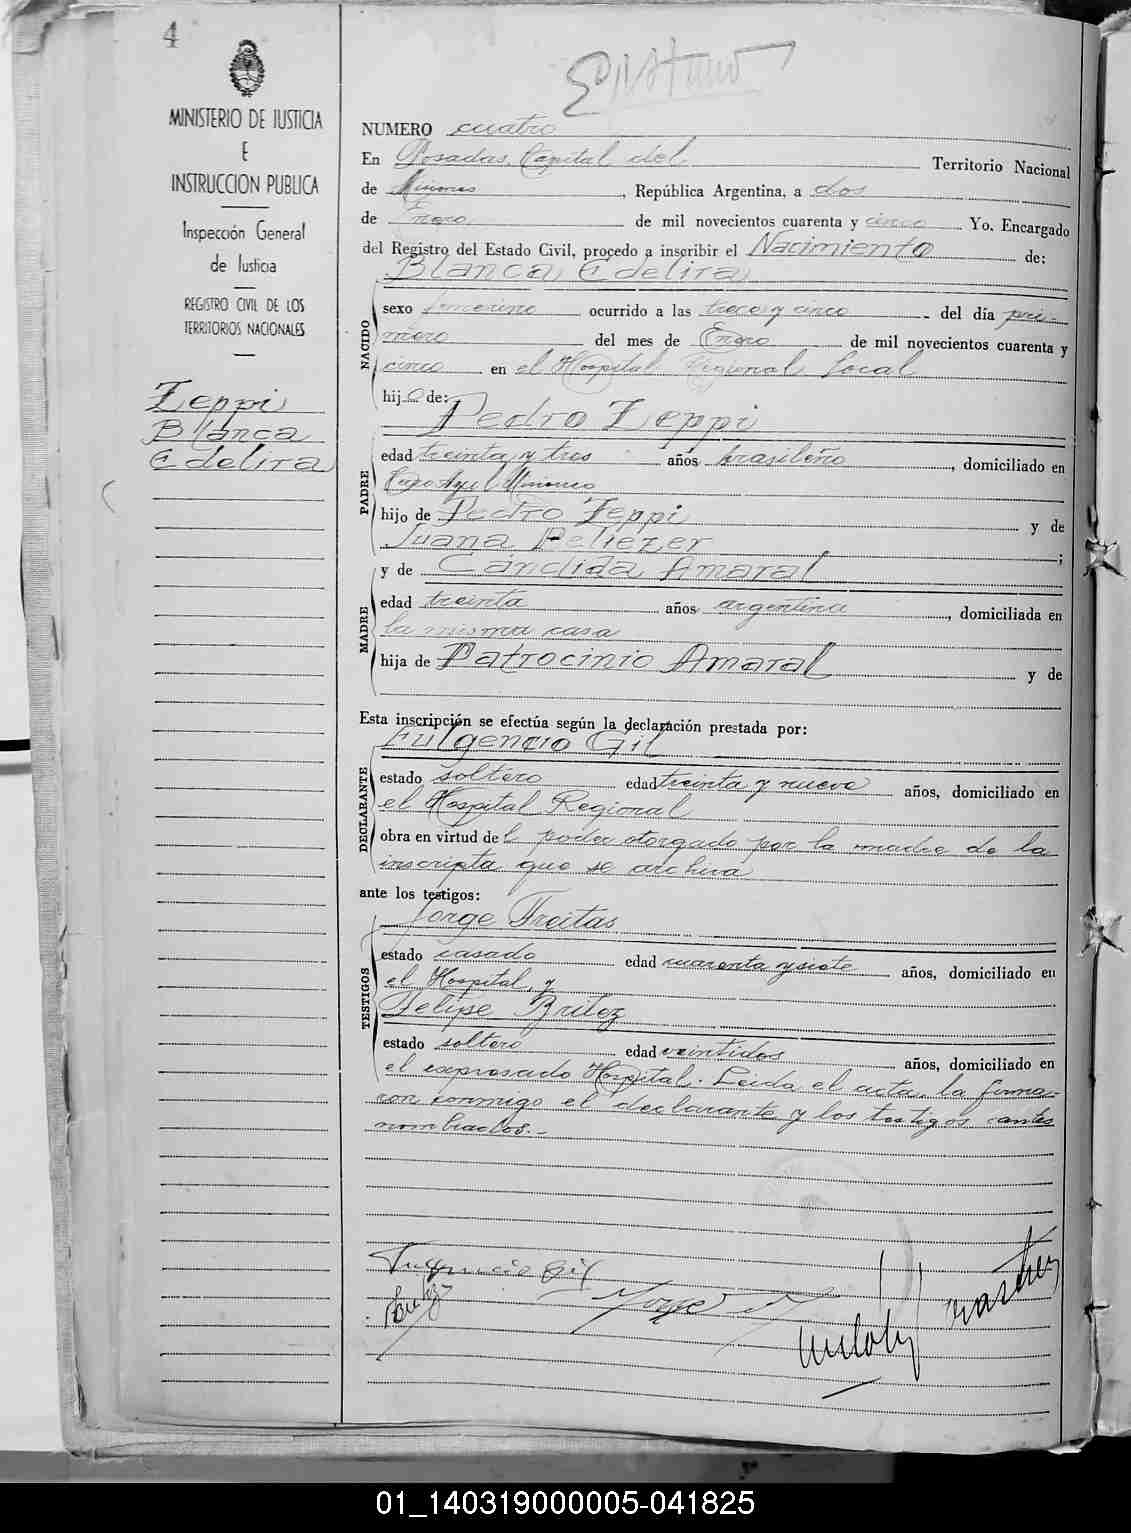 4
MINISTERIO DE JUSTICIA
E
INSTRUCCION PUBLICA
Inspección General
de Justicia
REGISTRO CIVIL DE LOS
TERRITORIOS NACIONALES
Zeppi
Blanca
Edelira
NUMERO cuatro
En Posadas, Capital del Territorio Nacional
de Misiones, República Argentina, a dos
de Enero de mil novecientos cuarenta y cinco Yo. Encargado
del Registro del Estado Civil, procedo a inscribir el Nacimiento de:
Blanca Edelira
NACIDO
sexo femenino ocurrido a las trece y cinco del día pri-
mero del mes de Enero de mil novecientos cuarenta y
cinco en el Hospital Regional Local
hijo de:
Pedro Zeppi
PADRE
edad treinta y tres años brasileño, domiciliado en
Misiones
hijo de Pedro Zeppi y de
Juana Peliezer;
y de Cándida Amaral
MADRE
edad treinta años argentina, domiciliada en
la misma casa
hija de Patrocinio Amaral y de
Esta inscripción se efectúa según la declaración prestada por:
Fulgencio Gil
DECLARANTE
estado soltero edad treinta y nueve años, domiciliado en
el Hospital Regional
obra en virtud del poder otorgado por la madre de la
inscripta que se archiva
ante los testigos:
Jorge Freitas
TESTIGOS
estado casado edad cuarenta y siete años, domiciliado en
el Hospital, y
Felipe Britez
estado soltero edad veintidos años, domiciliado en
el expresado Hospital. Leida el acta, la firma-
ron conmigo el declarante y los testigos antes
nombrados.-
Fulgencio Gil
Britez
Jorge
01_140319000005-041825